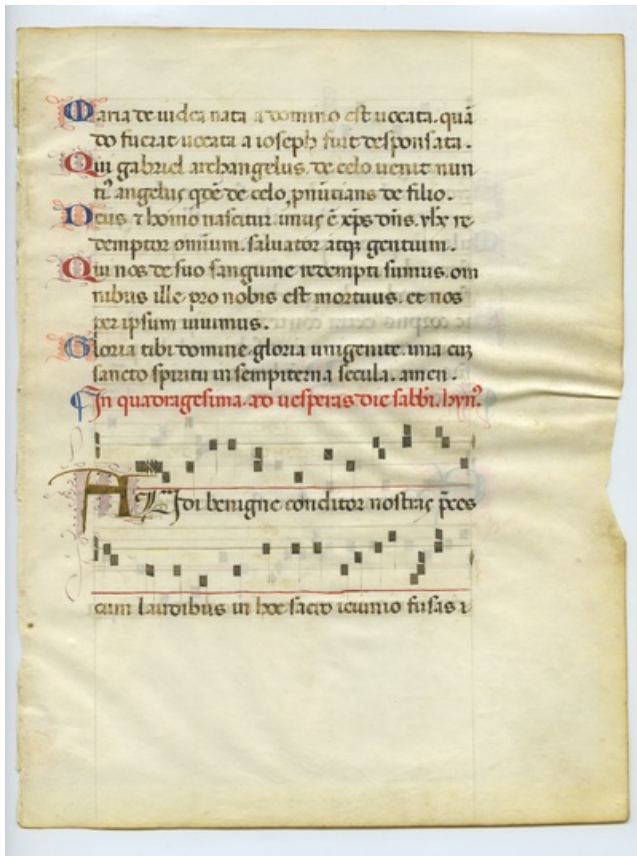 Maria de iudea nata a domino est uocata. quā
do fuerat uocata a ioseph fuit desponsata.
Qui gabriel archangelus de celo uenit nun
tiꝰ angelus qđē de celo, pnūtians de filio.
Deus ⁊ homo nascitur unus ē xp̄s dn̄s. ylx re
demptor omnium. saluator atqꝫ gentium.
Qui nos de suo sanguine redempti sumus. om
nibus ille pro nobis est mortuus. et nos
per ipsum uiuimus.
Gloria tibi domine gloria unigenite. una cuꝫ
sancto spiritu in sempiterna secula. amen.
In quadragesima. ad uesperas die sabbī. hynꝰ.
AUdi benigne conditor nostras p̄ces
cum laudibus in hoc sacro ieiunio fusas i